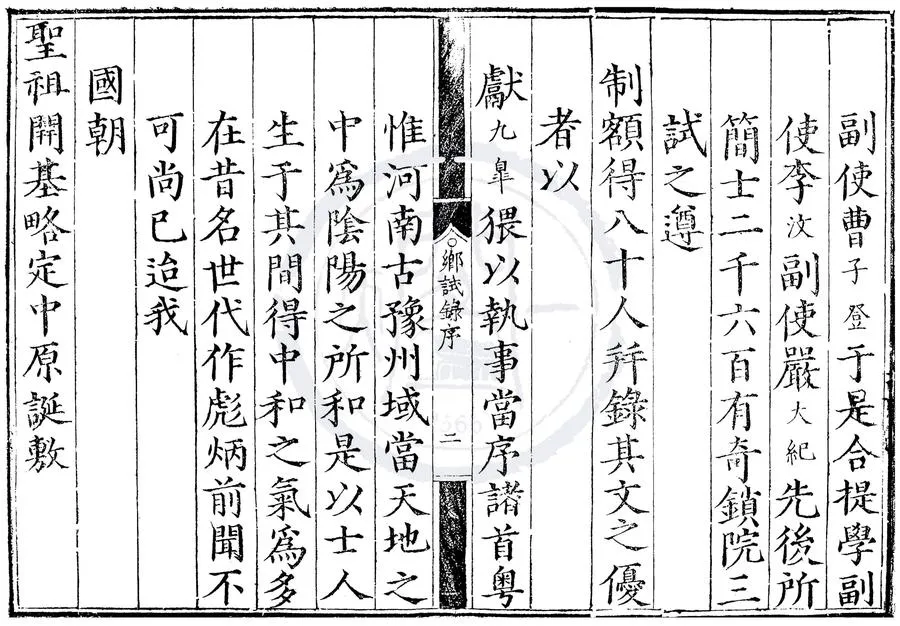 副使曹子登于是合提學副
使李汶副使嚴大紀先後所
簡士二千六百有奇鎖院三
試之遵
制額得八十人幷錄其文之優
者以
獻九臯猥以執事當序諸首粤
鄉試錄序
二
惟河南古豫州域當天地之
中爲陰陽之所和是以士人
生于其間得中和之氣爲多
在昔名世代作彪炳前聞不
可尚已迨我
國朝
聖祖開基略定中原誕敷